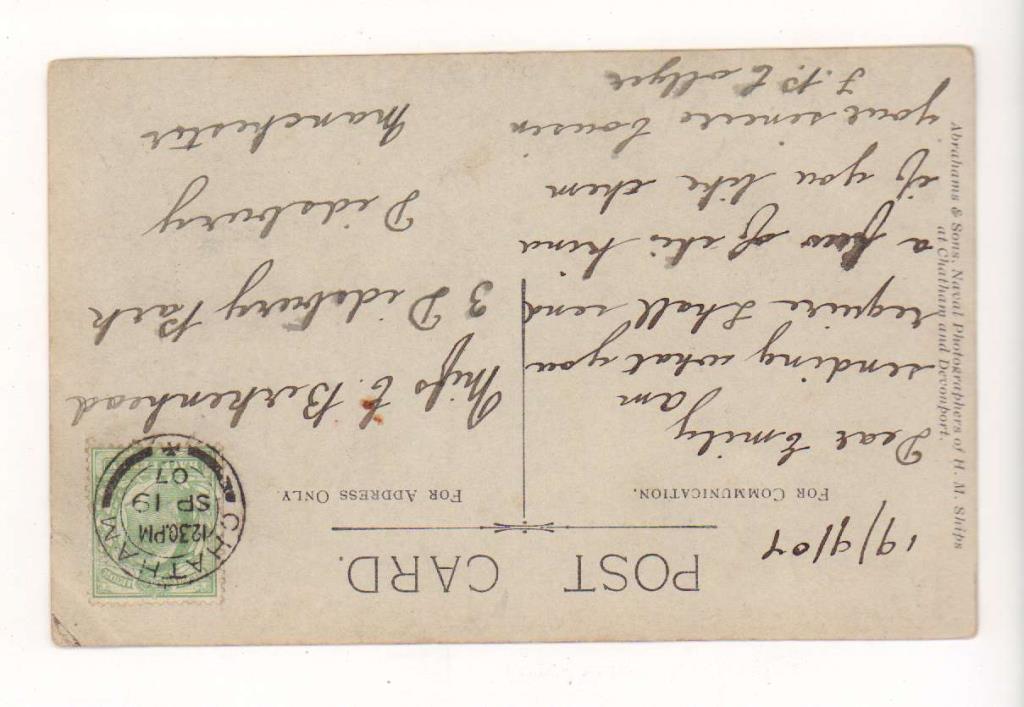 19/9/07
POST CARD.
FOR COMMUNICATION.
FOR ADDRESS ONLY.
Dear Emily
am
sending what you
require Shall send
a few of this kind
if you like them
your sincere Cousin
J. P. Collyer
Miss E. Birkenhead
3 Didsbury Park
Didsbury
Manchester
CHATHAM
12.30.PM
SP 19
07
Abrahams & Sons, Naval Photographers of H. M. Ships
at Chatham and Devonport.